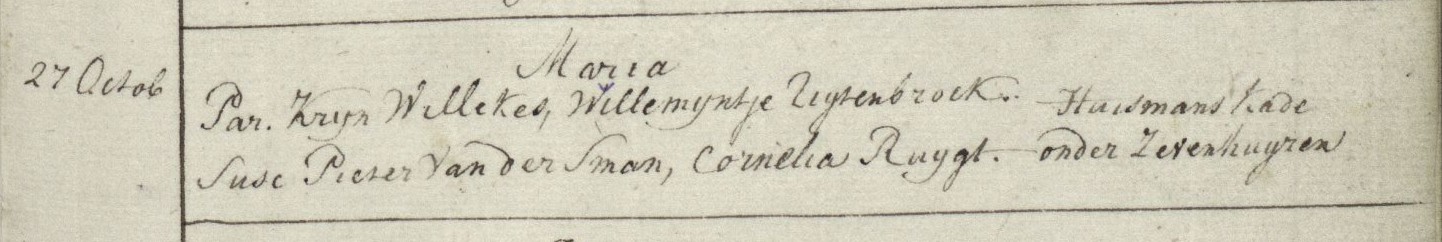 Maria
27 Octob
Par. Kryn Willekes, Willemyntje Uytenbroek. - Huismans kade
Susc Pieter Van der Sman, Cornelia Ruygt. - onder Zevenhuyzen